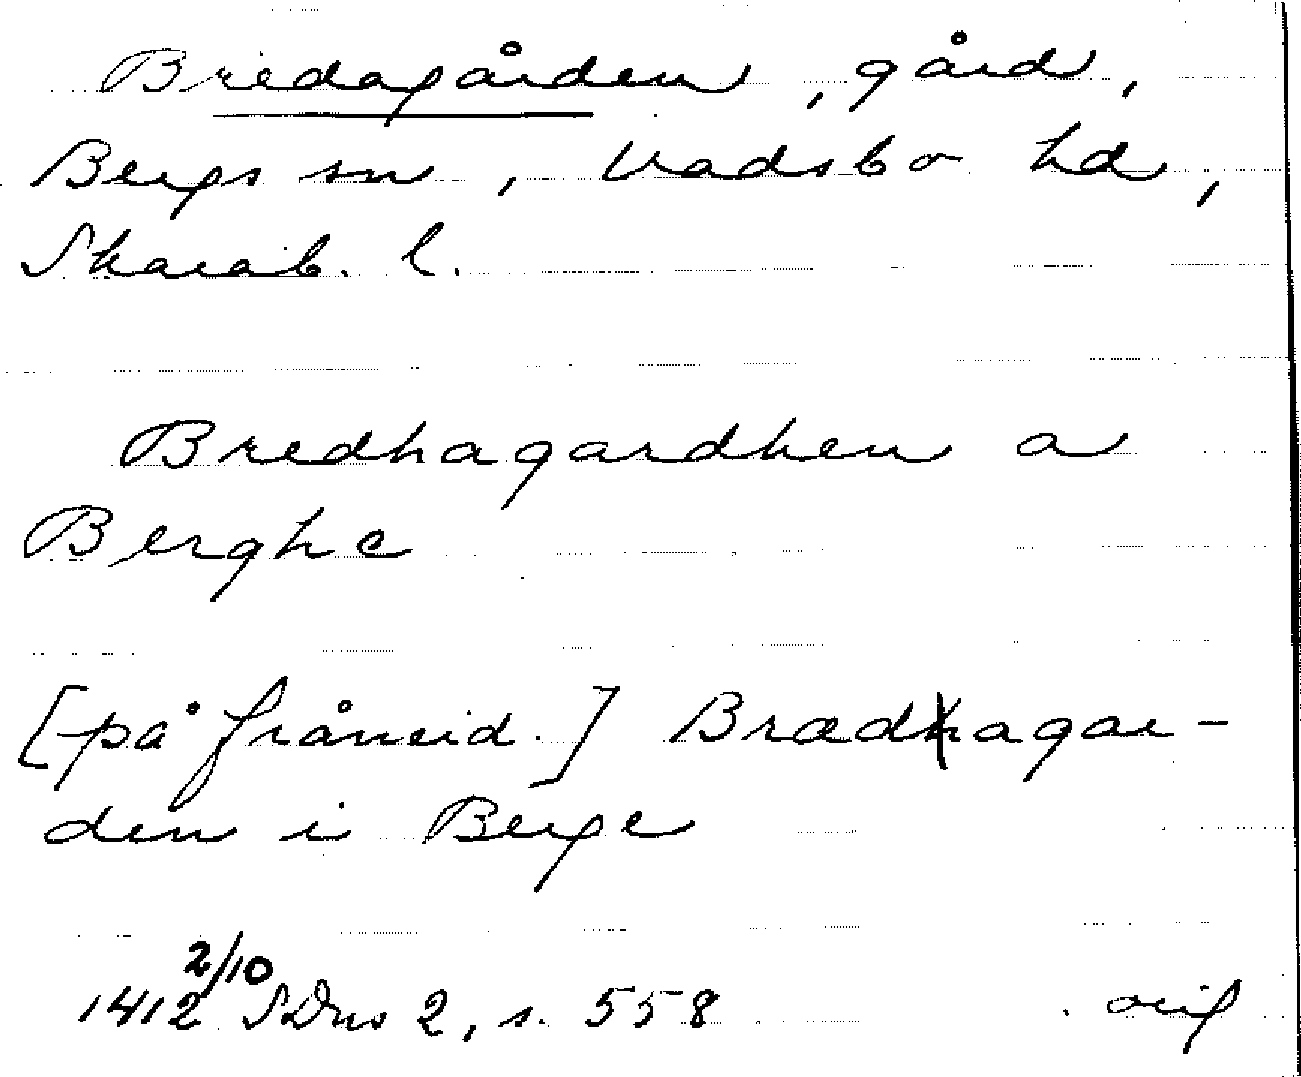 Bredagården, gård,
Bergs sn, Vadsbo hd,
Skarab. l.
Bredhagardhen a
Berghe
[på frånsid.] Brædhagar-
den i Berge
1412 2/10 SDns 2, s. 558 orig